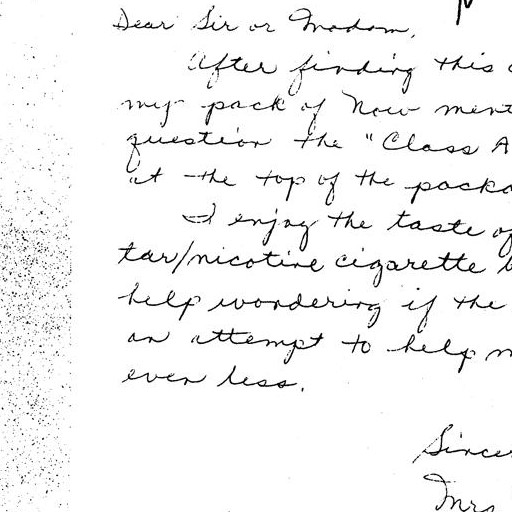 Dear Sir or Madam,
After finding this
my pack of Now ment
question the "Class A
at the top of the packa
I enjoy the taste of
tar/nicotine cigarette
help wondering if the
an attempt to help m
even less.
Sincer
Mrs